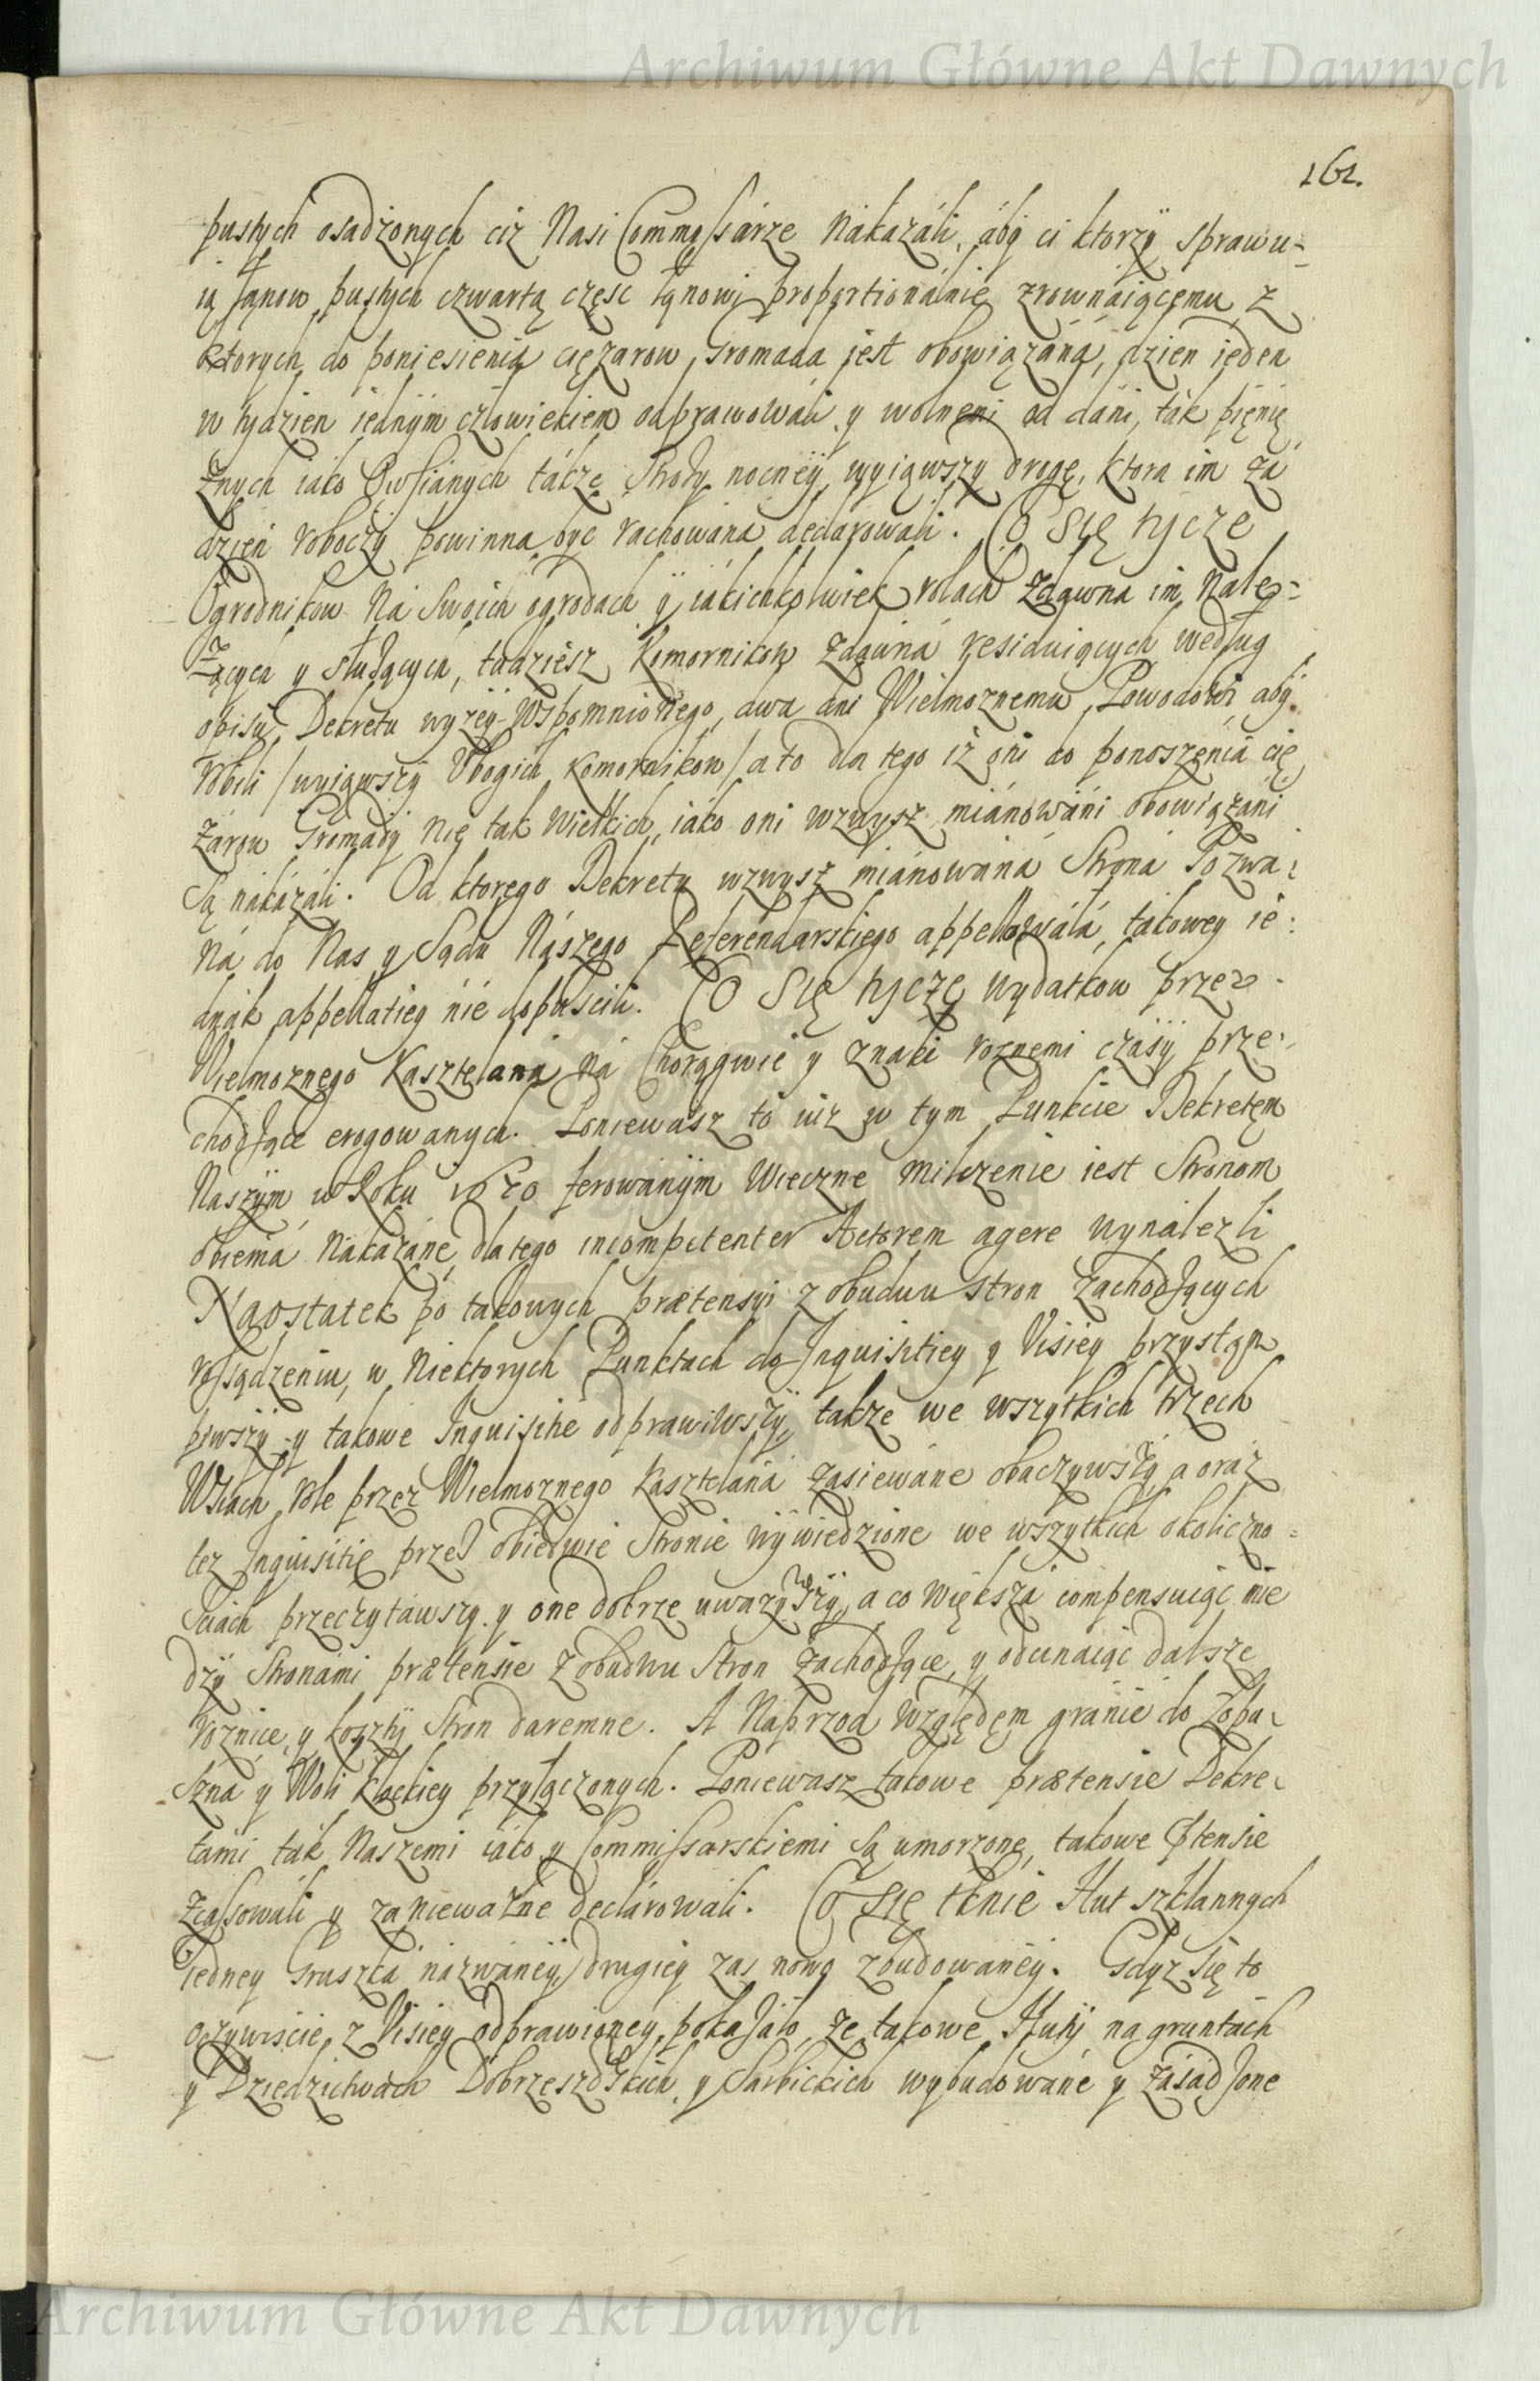 Archiwum Główne Akt Dawnych
161.
pustych osadzonych ciz Nasi Com̃missárze Nákazáli, áby ci ktorzÿ sprawu=
ią Łanow pustych czwartą częsc łanowi proportionálnie zrownáiącemu z
ktorych do poniesienia cięzarow Gromada jest obowiązáná, dzien ieden
w tydzien iednÿm człowiekiem odprawowali y wolnemi od dáni, ták pięnię
znych iáko Owsiánych tákze Strozy nocneÿ wyiąwszy drogę, ktora im zá
dzień roboczy powinna byc rachowána declarowali. Co Się tycze
Ogrodnikow Ná Swoich ogrodach ÿ iákichkolwiek rolach zdawna im Nále=
zących y słuzących, tudziész Komornikow zdawná residuiących według
opisu Dekretu wyzeÿ Wspomnionego, dwa dni Wielmoznemu Powodowi abÿ
robili /wyiąwszÿ Vbogich Komornikow/ a to dla tego iz oni do ponoszenia cię
zárow Gromadÿ nie tak wielkich, iáko oni wzwysz miánowáni obowiązáni
Są nákázáli. Od ktorego Dekretu wzwysz miánowána Strona Pozwa=
ná do Nas y Sądu Nászego Referendarskiego appellowálá, takowey ie=
dnák appellatiey nié dopuscili. Co Się tycze wydatkow przez
Wielmoznego Kasztelaná ná Chorągwie y znaki roznemi czasÿ prze=
chodzące erogowanych. Poniewasz to iuz w tym Punkcie Dekretem
Naszÿm w Roku 1670 ferowánÿm Wieczne milczenie iest Stronom
obiemá Nakazáne, dla tego incompetenter Actorem agere wynálezli
Naostatek po takowych prætensÿi z obudwu stron zachodzących
rossądzeniu, w Niektorych Punktach do Inquisitiey y Visiey przystąpi
piwszÿ y takowe Inquisitie odprawiwszÿ, takze we wszytkich trzech
Wsiach role przez Wielmoznego Kasztelána zasiewáne obaczywszy, a oráz
tez Inquisitie przez obiedwie Stronie wÿwiedzione we wszytkich okoliczno=
Sciach przeczytáwszy y one dobrze uwazywszÿ, a co większá compensuiąc mie
dzÿ Stronámi prætensie z obudwu Stron zachodzące y odcinaiąc dalsze
roznice y kosztÿ Stron daremne. A Náprzod względem gránic do Łopu=
Szná y Woli kłuckiey przyłączonych. Poniewasz takowe prætensie Dekre=
támi ták Naszemi iáko y Commissarskiemi Są umorzone, takowe Ptensie
zcassowáli y za niewázne declárowáli. Co się tknie Hut szklannych
iedney Gruszka názwáneÿ drugieÿ zas nowo zbudowáneÿ. Gdyz Się to
oczywiscie z Visiey odprawioney pokazáło, ze takowe Hutÿ na gruntách
y Dziedzictwách Dobrzeszowskich y Sarbickich wybudowáne y zásadzone
Archiwum Główne Akt Dawnych